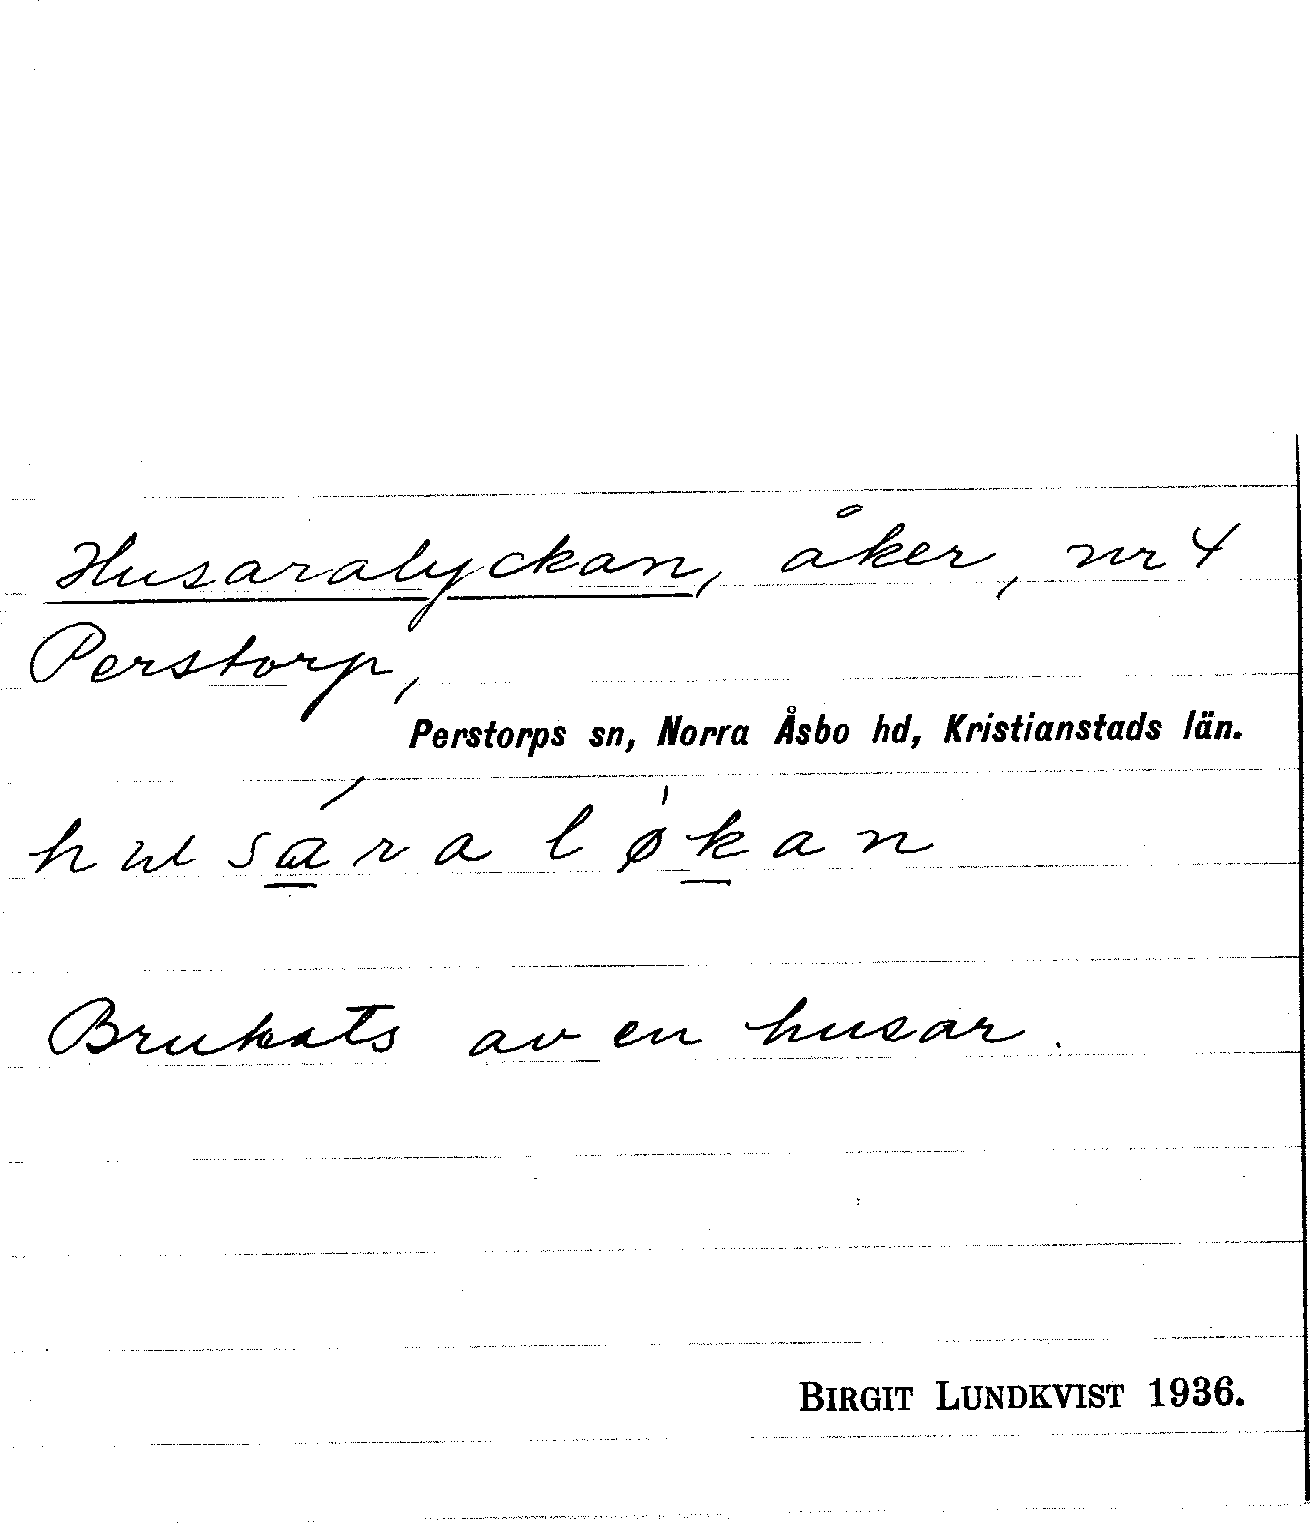 Husaralyckan, åker, nr 4
Perstorp,
Perstorps sn, Norra Åsbo hd, Kristianstads län.
husáraløkan
Brukats av en husar.
BIRGIT LUNDKVIST 1936.